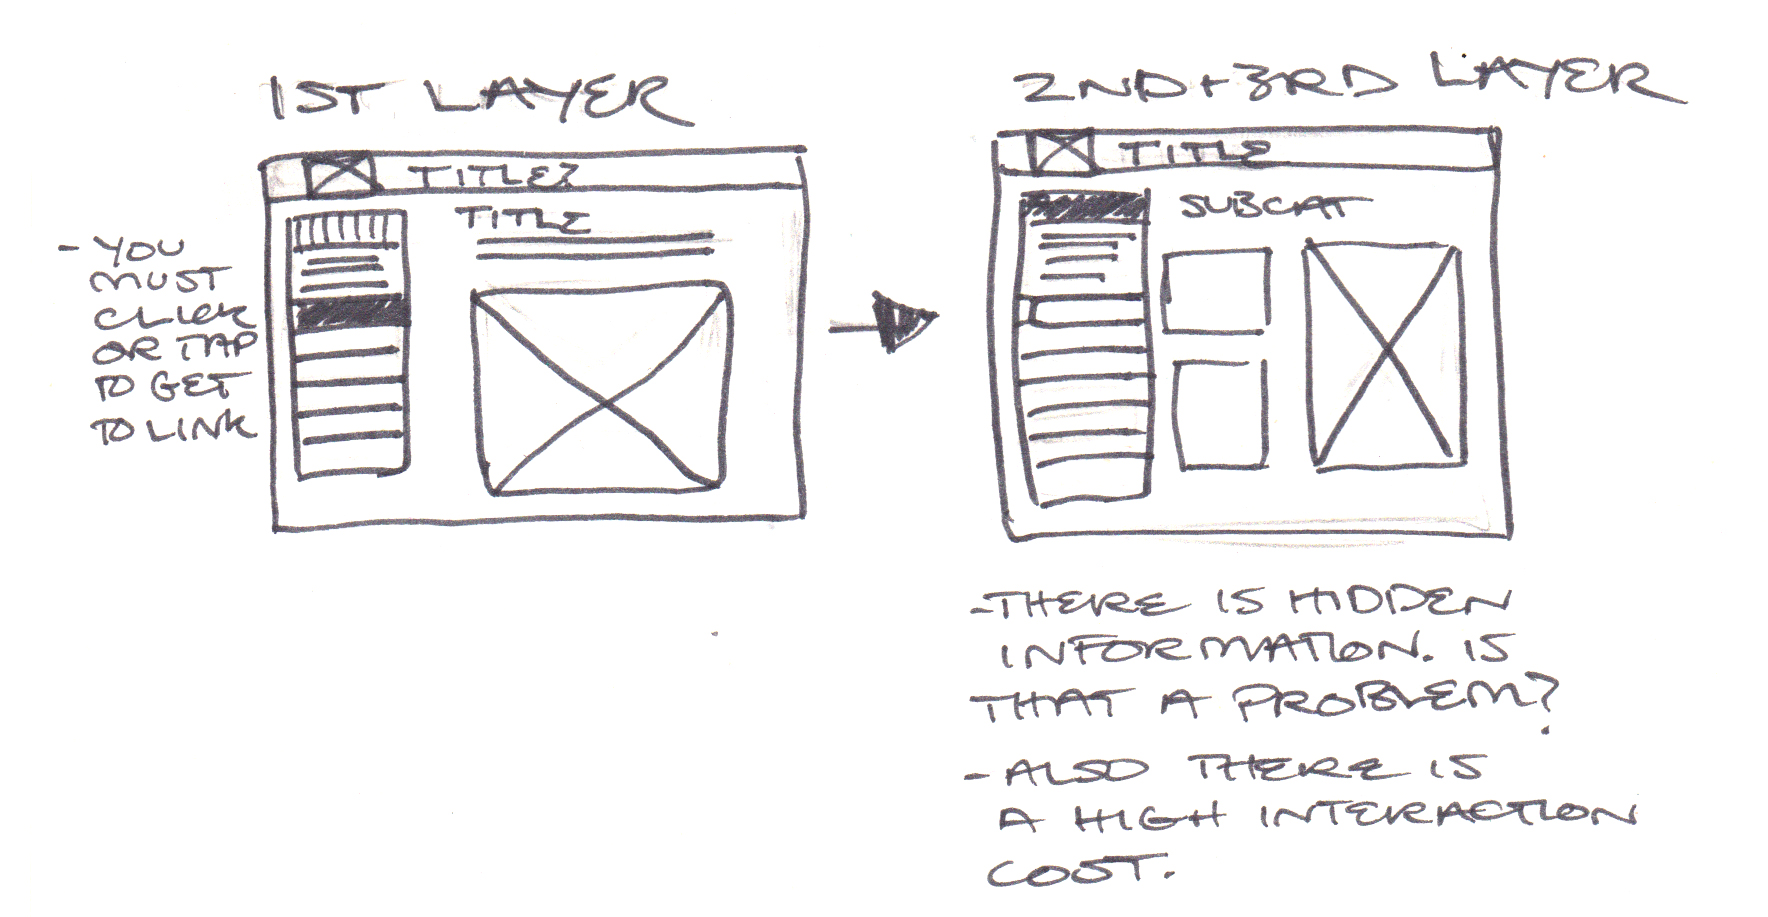 1ST LAYER
TITLE?
TITLE
- YOU
MUST
CLICK
OR TAP
TO GET
TO LINK
2ND + 3RD LAYER
TITLE
SUBCAT
- THERE IS HIDDEN
INFORMATION. IS
THAT A PROBLEM?
- ALSO THERE IS
A HIGH INTERACTION
COST.